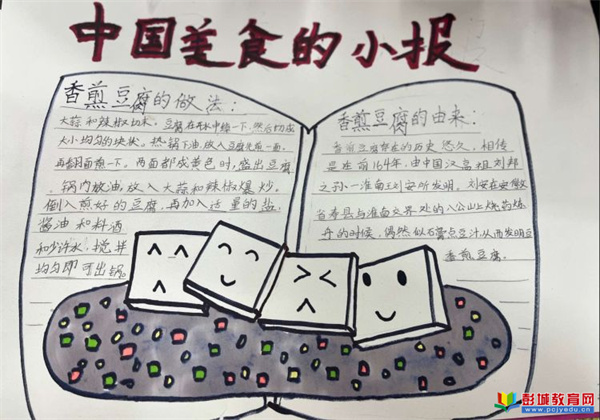 中国美食的小报
香煎豆腐的做法：
大蒜和辣椒切末。豆腐在开水中焯一下，然后切成
大小均匀的块状。热锅下油，放入豆腐先煎一面，
再翻面煎一下。两面都成黄色时，盛出豆腐。
锅内放油，放入大蒜和辣椒爆炒。
倒入煎好的豆腐，再加入适量的盐，
酱油和料酒
和少许水，搅拌
均匀即可出锅。
香煎豆腐的由来：
香煎豆腐存在的历史悠久，相传
是在前164年，由中国汉高祖刘邦
之孙－淮南王刘安所发明。刘安在安徽
省寿县与淮南交界处的八公山上烧药炼
丹的时候，偶然以石膏点豆汁，从而发明豆
香煎豆腐。
彭城教育网
www.pcjyedu.cn